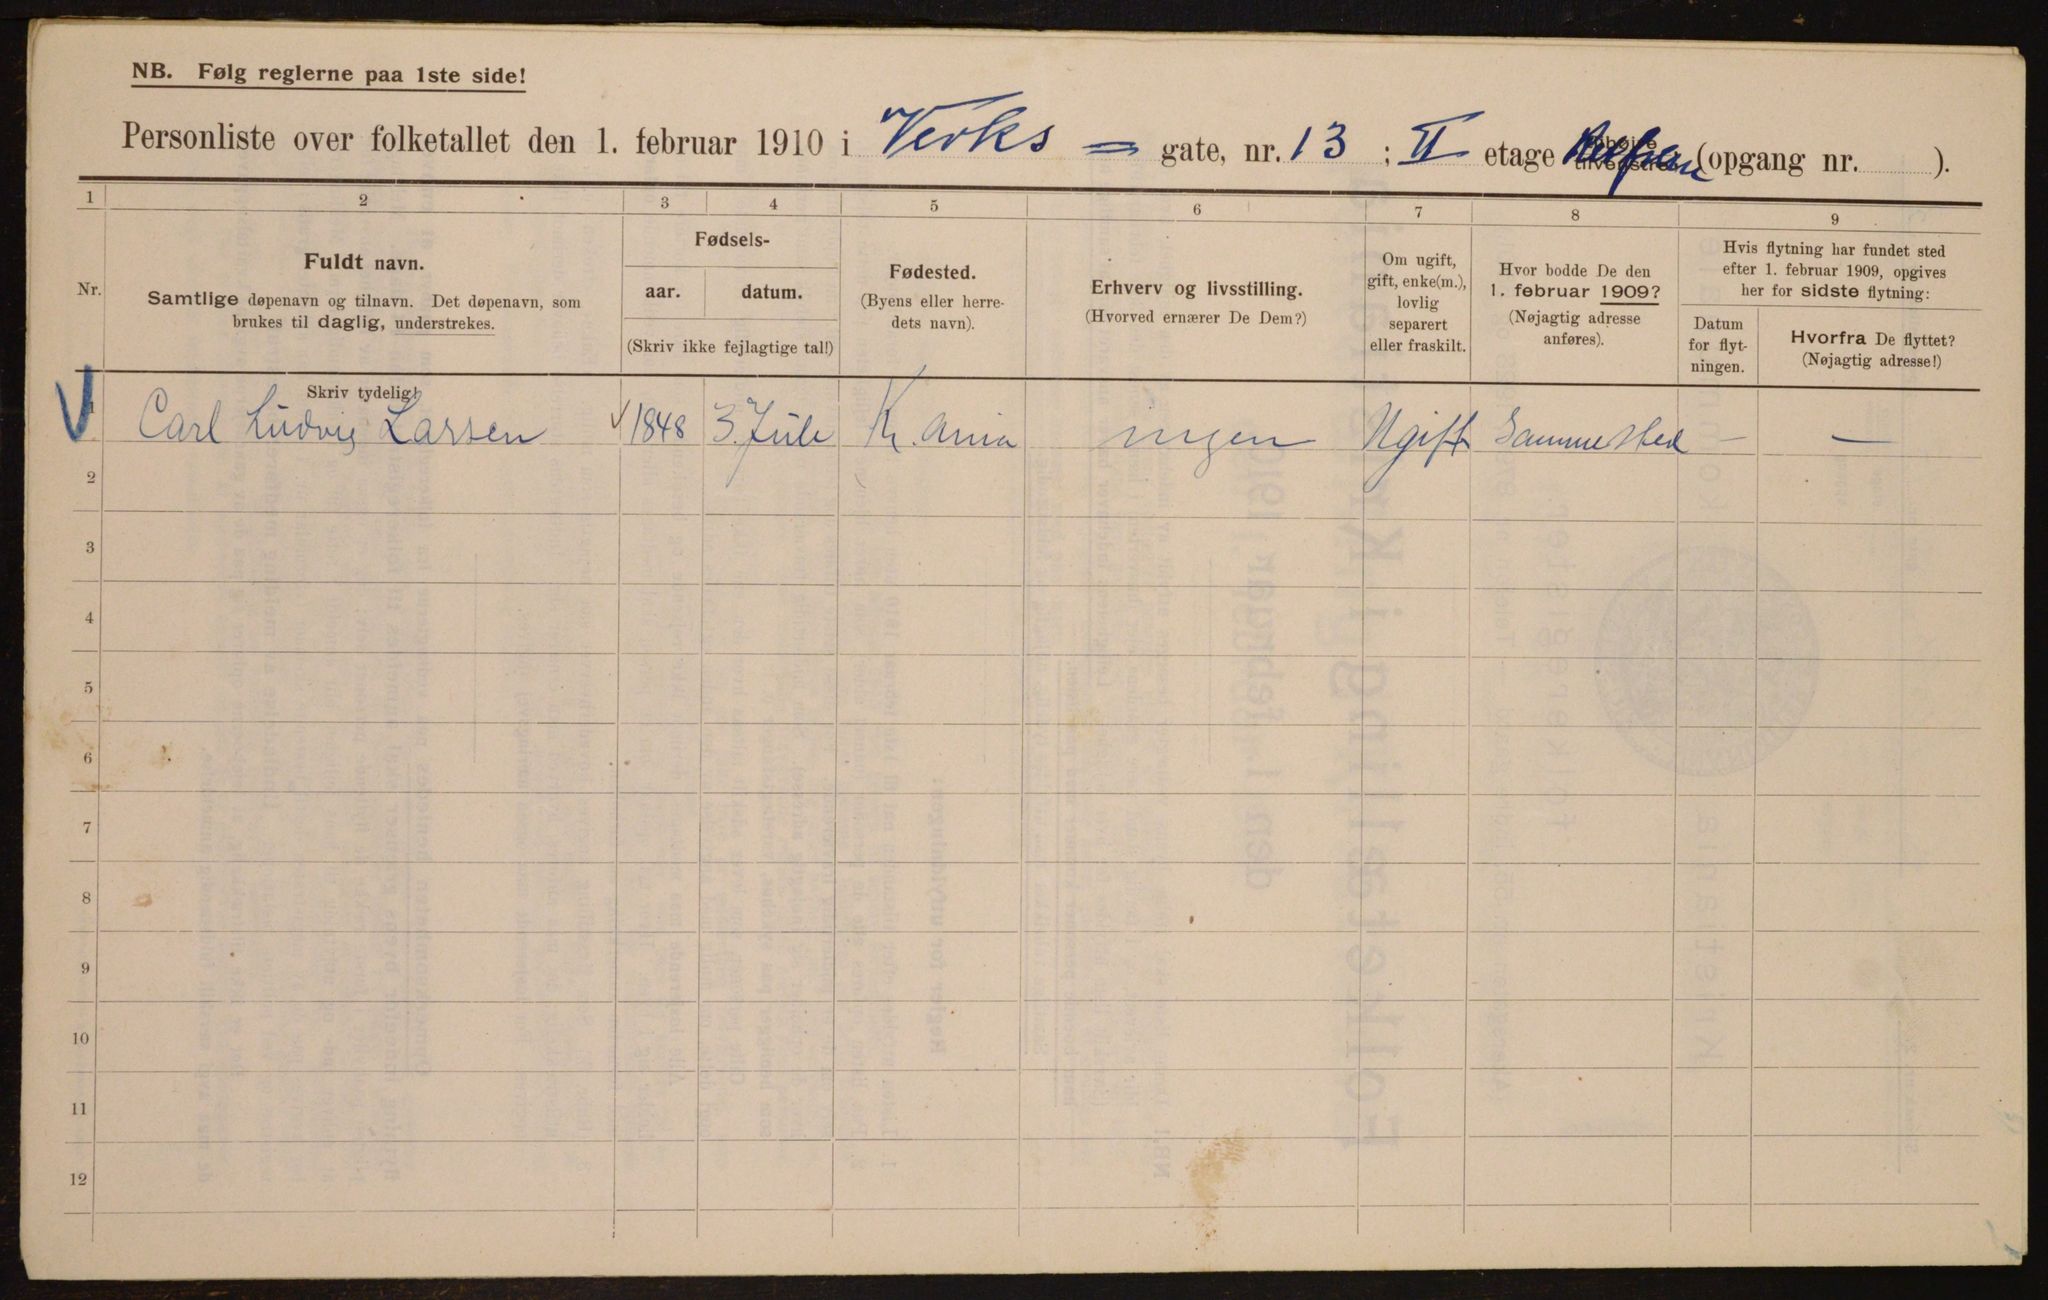 NB. Følg reglerne paa 1ste side!
Personliste over folketallet den 1. februar 1910 i Verks = gate, nr. 13 ; II etage (opgang nr. ).
1 2 3 4 5 6 7 8 9
Nr.
Fuldt navn.
Samtlige døpenavn og tilnavn. Det døpenavn, som
brukes til daglig, understrekes.
Fødsels-
aar. datum.
(Skriv ikke fejlagtige tal!)
Fødested.
(Byens eller herre-
dets navn).
Erhverv og livsstilling.
(Hvorved ernærer De Dem?)
Om ugift,
gift, enke(m.),
lovlig
separert
eller fraskilt.
Hvor bodde De den
1. februar 1909?
(Nøjagtig adresse
anføres).
Hvis flytning har fundet sted
efter 1. februar 1909, opgives
her for sidste flytning:
Datum
for flyt-
ningen.
Hvorfra De flyttet?
(Nøjagtig adresse!)
Skriv tydelig!
1 Carl Ludvig Larsen 1848 3. Juli Kr.ania ingen Ugift Sammested — —
2
3
4
5
6
7
8
9
10
11
12